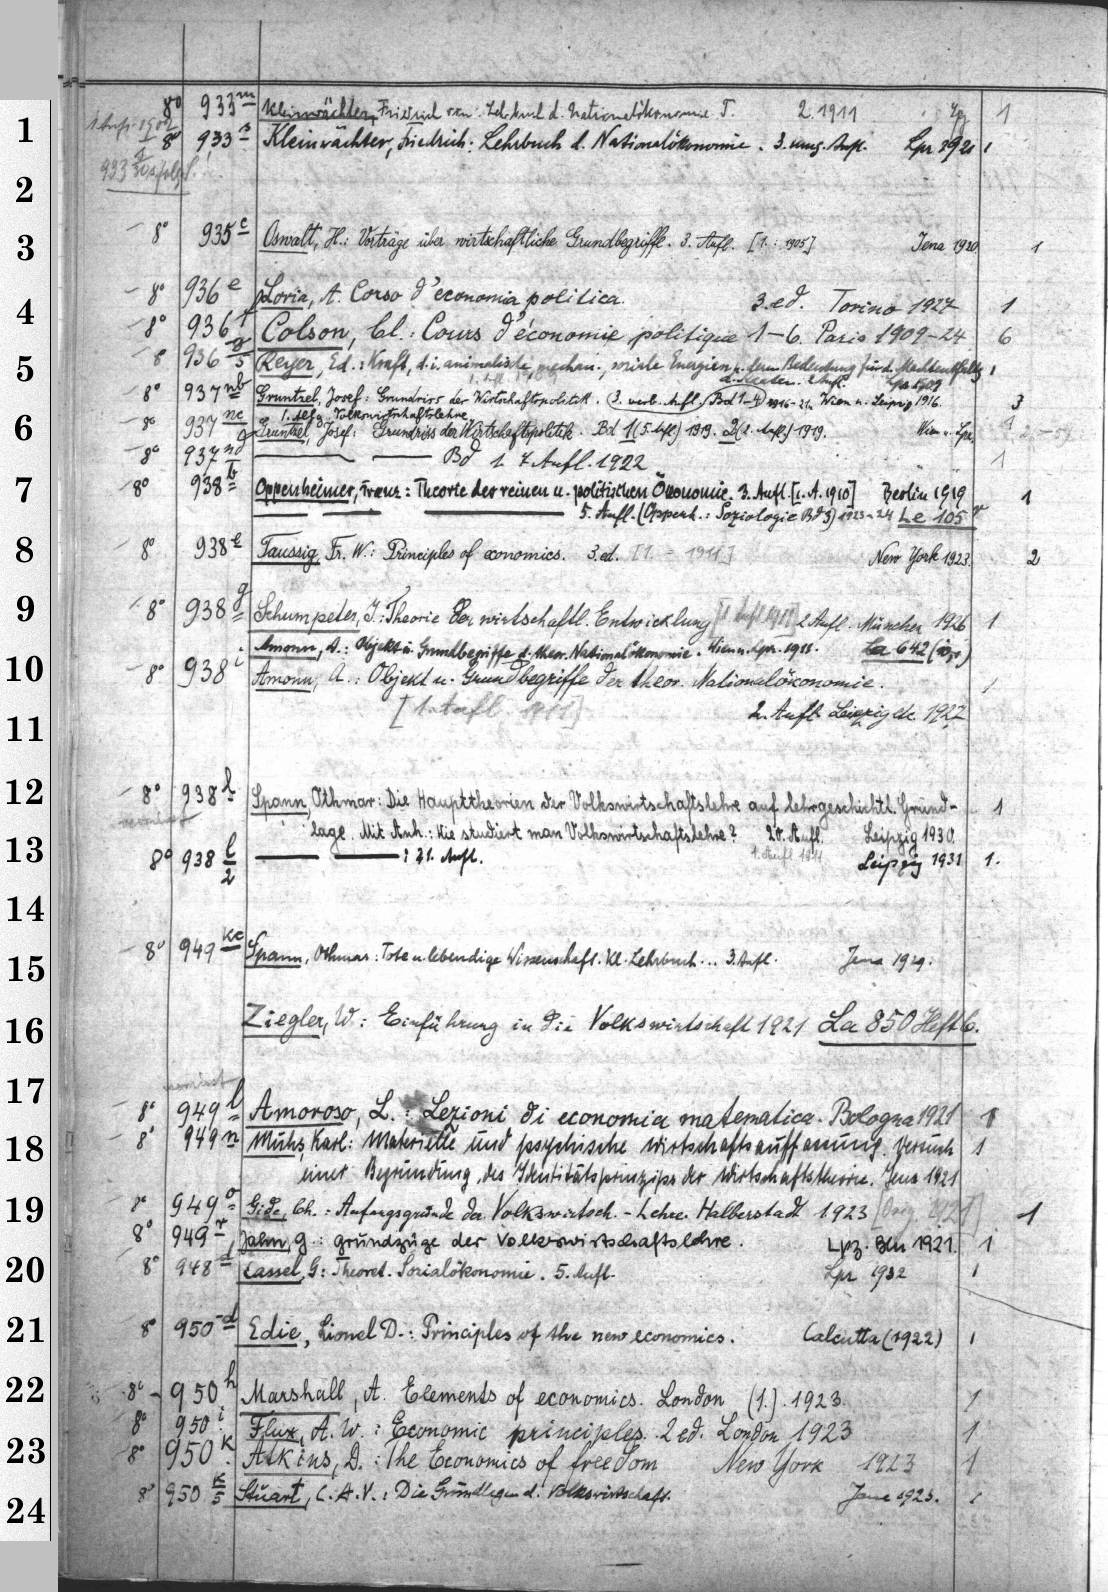 8° 933 m Kleinwächter, Friedrich v. Lehrbuch d. Nationalökonomie 2. 1911 Lpz 1
1 8° 933 n Kleinwächter, Friedrich: Lehrbuch d. Nationalökonomie. 3. umg. Aufl. Lpz 1921 1
933
2
3 8° 935 c Oswalt, H.: Vorträge über wirtschaftliche Grundbegriffe. 3. Aufl. [1. : 1905] Jena 1920 1
8° 936 e Loria, A. Corso d'economia politica. 3. ed. Torino 1927 1
4 8° 936 f Colson, Cl.: Cours d'économie politique 1-6. Paris 1909-24 6
5 8 936 g/5 Reyer, Ed.: Kraft, d. i. animalische, mechan., soziale Energien u. deren Bedeutung für d. Machtentfaltg
d. Staaten. 2. Aufl. Lpz 1909 1
8° 937 nb Gruntzel, Josef: Grundriss der Wirtschaftspolitik. (3. verb. Aufl. Bd 1-4) 1916-21. Wien u. Leipzig 1916. 3
1. Allg. Volkswirtschaftslehre
6 8° 937 nc Gruntzel, Josef: Grundriss der Wirtschaftspolitik. Bd 1 (5. Aufl.) 1919. 2 (2. Aufl.) 1919. Wien u. Lpz. 1
8° 937 nd Bd 1. 7 Aufl. 1922 1
7 8° 938 b Oppenheimer, Franz: Theorie der reinen u. politischen Ökonomie. 3. Aufl. [1. A. 1910] Berlin 1919 1
5. Aufl. (Oppenh.: Soziologie Bd 3) 1923-24 Le 105 r
8 8° 938 e Taussig, Fr. W.: Principles of economics. 3. ed. [1. - 1911] New York 1923. 2
9 8° 938 g Schumpeter, J.: Theorie der wirtschaftl. Entwicklung [1 Aufl 1912] 2 Aufl. München 1926 1
Amonn, A.: Objekt u. Grundbegriffe d. theor. Nationalökonomie. Wien u. Lpz. 1911. La 642
10 8° 938 i Amonn, A.: Objekt u. Grundbegriffe der theor. Nationalökonomie. 1
11 [1. Aufl. 1911] 2. Aufl. Leipzig etc. 1927
12 8° 938 k Spann, Othmar: Die Haupttheorien der Volkswirtschaftslehre auf lehrgeschichtl. Grund- 1
lage. Mit Anh.: Wie studiert man Volkswirtschaftslehre? 20. Aufl. Leipzig 1930.
1. Aufl 1911
13 8° 938 l/2 : 21. Aufl. Leipzig 1931 1.
14
15 8° 949 kc Spann, Othmar: Tote u. lebendige Wissenschaft. Kl. Lehrbuch... 3. Aufl. Jena 1929.
16 Ziegler, W: Einführung in die Volkswirtschaft 1921 La 850 Heft 6.
17
8° 949 l Amoroso, L.: Lezioni di economia matematica. Bologna 1921 1
18 8° 949 n Muhs, Karl: Materielle und psychische Wirtschaftsauffassung. Versuch 1
einer Begründung des Identitätsprinzips der Wirtschaftstheorie. Jena 1921
19 8° 949 o Gide, Ch.: Anfangsgründe der Volkswirtsch.-Lehre. Halberstadt 1923 1
8° 949 r Jahn, G.: Grundzüge der Volkswirtschaftslehre. Lpz. Bln 1921. 1
20 8° 948 d Cassel, G: Theoret. Sozialökonomie. 5. Aufl. Lpz 1932 1
21 8° 950 d Edie, Lionel D.: Principles of the new economics. Calcutta (1922) 1
22 8° 950 h Marshall, A. Elements of economics. London (1.). 1923 1
8° 950 i Flux, A. W.: Economic principles. 2 ed. London 1923 1
23 8° 950 k Atkins, D.: The Economics of freedom New York 1923 1
24 8° 950 k/5 Stuart, C. A. V.: Die Grundlagen d. Volkswirtschaft. Jena 1923. 1